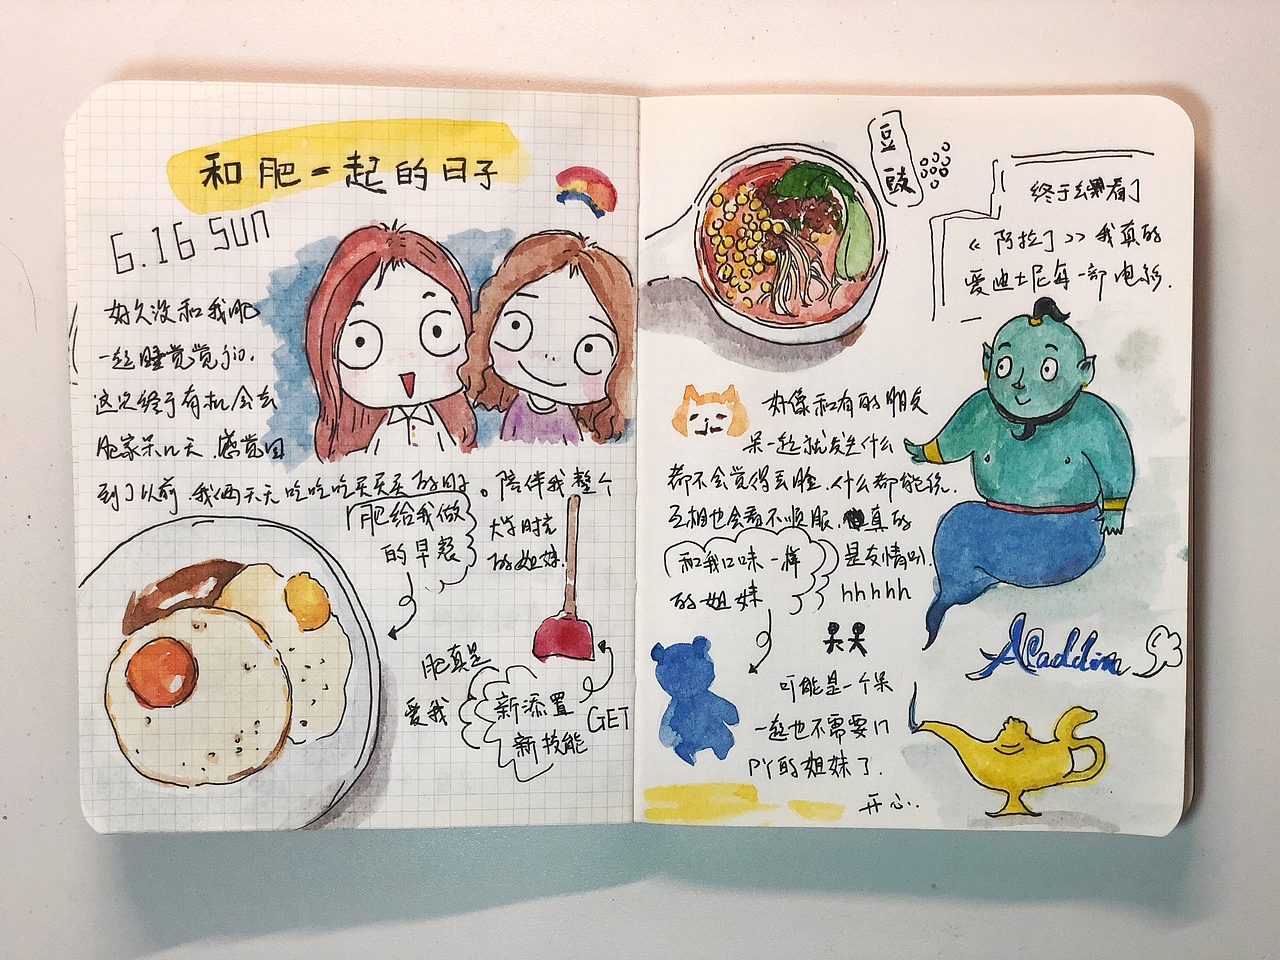 和肥一起的日子
6.16 SUN
好久没和我肥
一起睡觉觉了
这次终于有机会去
肥家呆几天.感觉回
到了以前.我俩天天吃吃吃买买买的日子。陪伴我整个
大学时光
的姐妹.
肥给我做
的早餐
肥真是
爱我
新添置
新技能
GET
豆豉
终于去看了
《阿拉丁》我真的
爱迪士尼每一部电影.
好像和有的朋友
呆一起就发生什么
都不会觉得丢脸.什么都能说.
互相也会看不顺眼.真的
是友情叭.
hhhhh
和我口味一样
的姐妹
果果
可能是一个呆
一起也不需要门
PY的姐妹了.
开心..
Aladdin